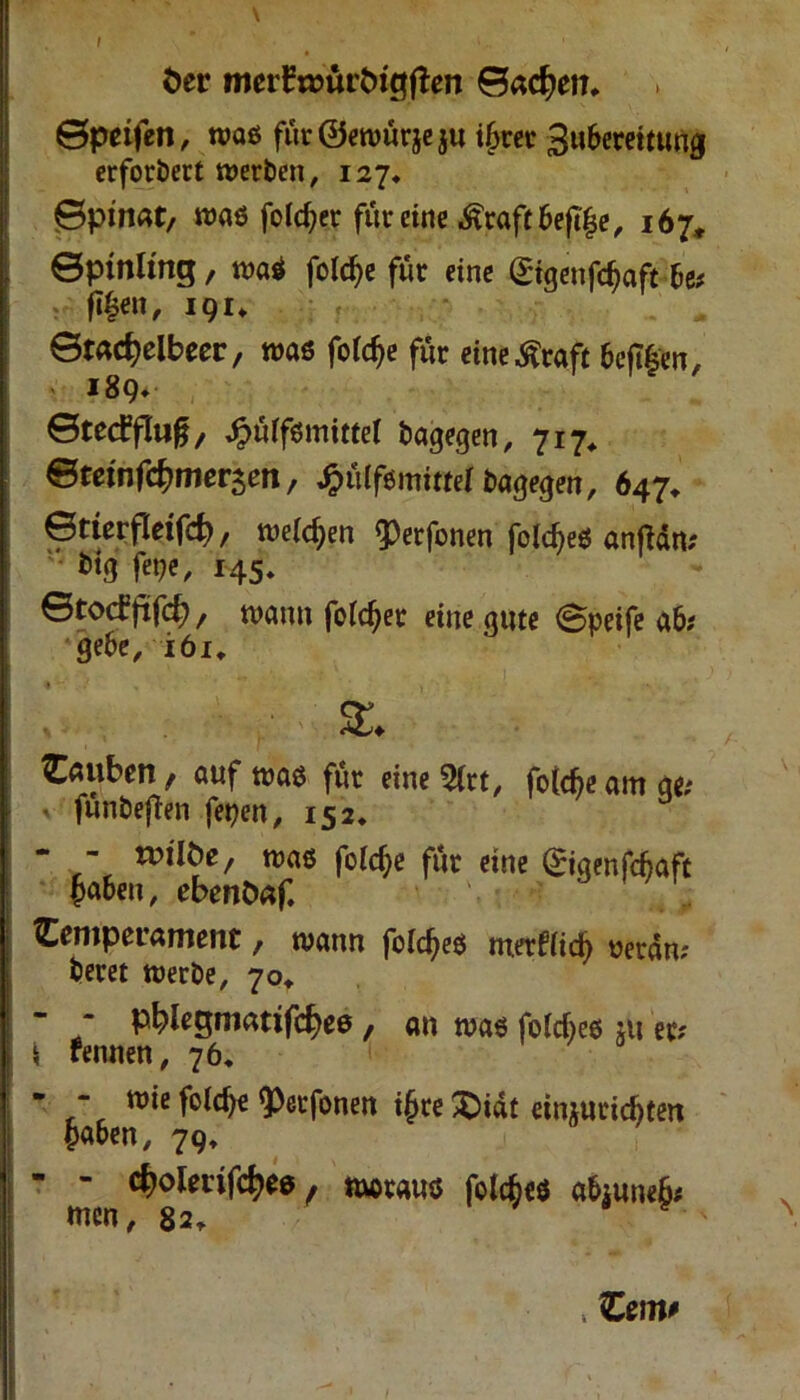 der merkwürdigsten Sachen.
Speisen, was für Gewürze zu ihrer Zubereitung
erfordert werden, 127.
Spinat, was solcher für eine Kraft besitze, 167.
Spinling, was solche für eine Eigenschaft be-
sitzen, 191.
Stachelbeer, was solche für eine Kraft besitzen,
189.
Steckfluß, Hülfsmittel dagegen, 717.
Steinschmerzen, Hülfsmittel dagegen, 647.
Stierfleisch, welchen Personen solches anstän-
dig seye, 145.
Stockfisch, wann solcher eine gute Speise ab-
gebe, 161.
T.
Tauben, auf was für eine Art, solche am ge-
sündesten seyen, 152.
- - wilde, was solche für eine Eigenschaft
haben, ebendas.
Temperament, wann solches merklich verän-
deret werde, 70.
- - phlegmatisches, an was solches zu er-
kennen, 76.
- - wie solche Personen ihre Diät einzurichten
haben, 79.
- - cholerisches, woraus solches abzuneh-
men, 82.
Tem-